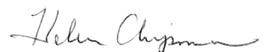 Helen Chipman